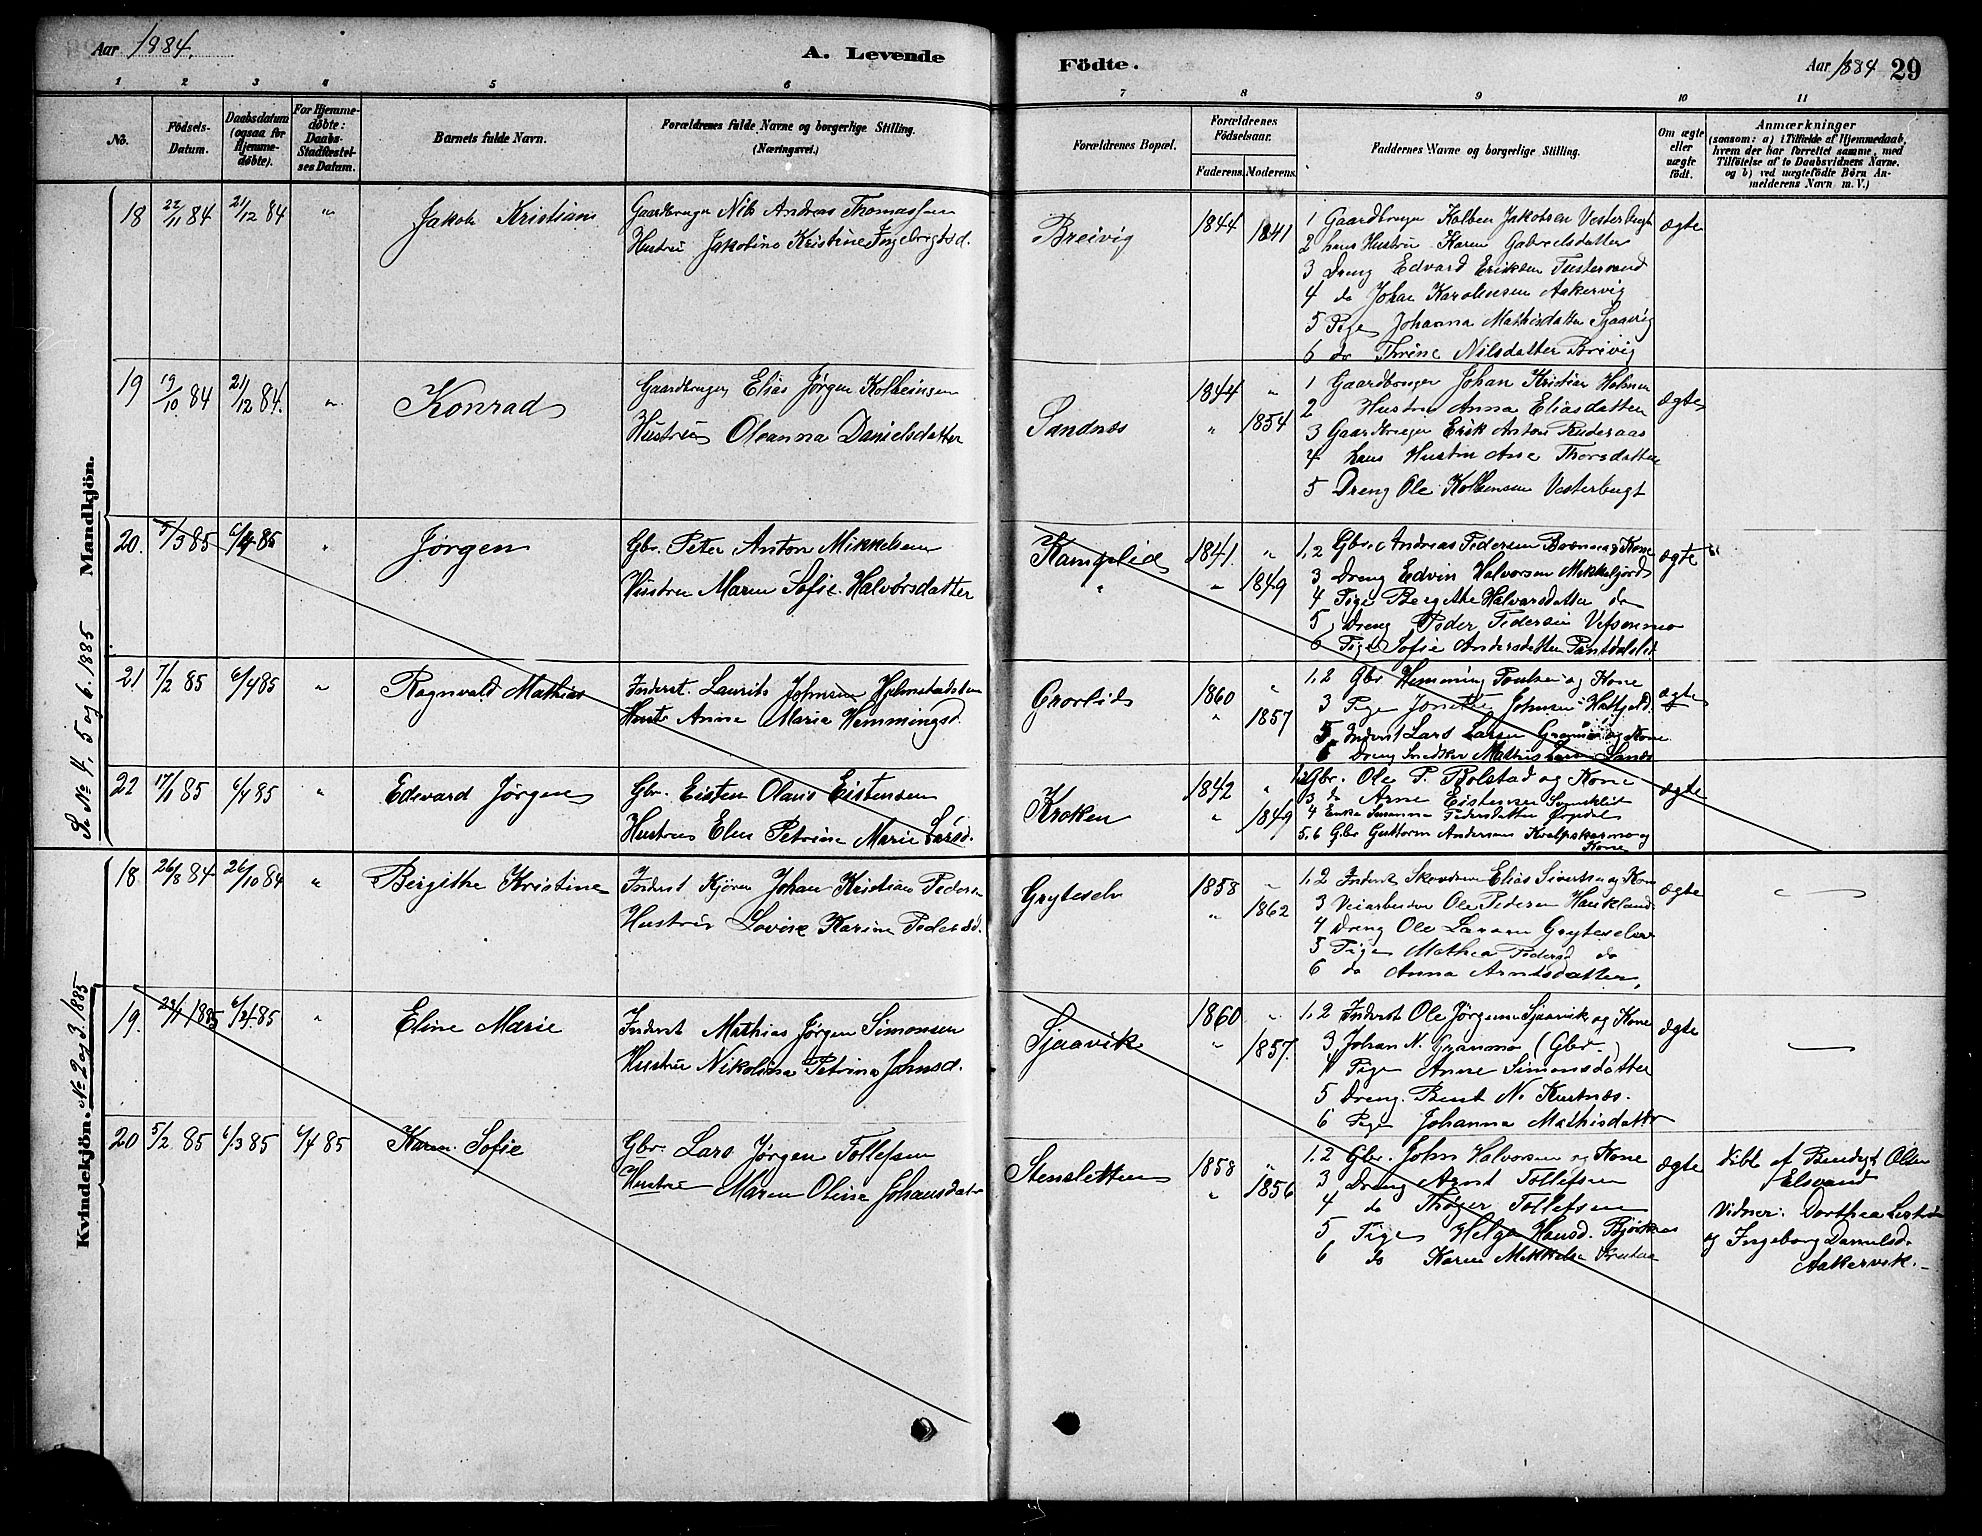 Aar 1884. A. Levende Fødte. Aar 1884 29
1 2 3 4 5 6 7 8 9 10 11
No.
Fødsels-
Datum.
Daabsdatum
(ogsaa for
Hjemme-
døbte).
For Hjemme-
døbte:
Daabs-
Stadfæstel-
ses Datum.
Barnets fulde Navn.
Forældrenes fulde Navne og borgerlige Stilling.
(Næringsvei.)
Forældrenes Bopæl.
Forældrenes
Fødselsaar.
Faderens. Moderens.
Faddernes Navne og borgerlige Stilling.
Om ægte
eller
uægte
født.
Anmærkninger
(saasom: a) i Tilfælde af Hjemmedaab,
hvem der har forrettet samme, med
Tilføielse af to Daabsvidners Navne.
og b) ved uægtefødte Børn An-
melderens Navn m. V.)
Mandkjön.
Se No 4, 5 og 6. 1885
18 22/11 84 21/12 84 " Jakob Kristian
Gaardbruger Nils Andreas Thomassen
Hustru Jakobine Kristine Ingebrigtsd.
Breivig 1844 1841
1 Gaardbruger Kolben Jakobsen Vesterbugt
2 hans Hustru Karen Gabrielsdatter
3 Dreng Edvard Eriksen Tustervand
4 do Johan Karolinesen Aakervig
5 Pige Johanna Mathisdatter Sjaavig
6 do Thrine Nilsdatter Brevig
ægte
19 19/10 84 21/12 84. " Konrad
Gaardbruger Elias Jørgen Kolbeinsen
Hustru Oleanna Danielsdatter
Sandnæs 1844 " " 1854
1 Gaardbruger Johan Kristian Holmen
2 Hustru Anna Eliasdatter
3 Gaardbruger Erik Anton
4 hans Hustru Ane Thorsdatter
5 Dreng Ole Kolbensen Vesterbugt
ægte
20. 5/3 85 6/4 85 " Jørgen
Gbr. Peter Anton Mikkelsen
Hustru Maren Sofie Halvorsdatter
Kamplid 1841. " " 1849
1,2 Gbr. Andreas Pedersen og Kone
3 Dreng Edvin Halvorsen Mikkeljord
4 Pige Bergithe Halvorsdatter do
5 Dreng Peder Pedersen Vefsenmo
6 Pige Sofie Andersdatter
ægte
21 7/2 85 6/4 85 " Ragnvald Mathias
Inderst. Laurits Johnsen
Hustr Anne Maria Hemmingsd.
Grorlid 1860 " " 1857
1,2 Gbr Hemming Poulsen og Kone
3 Pige Jonette Johnsen Hatfjeld.
5 Inderst Lars Larsen og Kone
6 Dreng Snedker Mathis
ægte
22 17/1 85 6/4 85 " Edvard Jørgen
Gbr. Eisten Olaus Eistensen
Hustru Elen Petrine Marie Larsd.
Kroken 1842 " " 1849
1,2 Gbr. Ole P. Bolstad og Kone
3 do Arne Eistensen
4 Enke Susanna Pedersdatter
5,6 Gbr Guttorm Andersen Kvalpskarmo og
Kone
ægte
Kvindekjön. No 2 og 3. 1885
18 26/8 84 26/10 84 " Birgithe Kristine
Inderst Johan Kristian Peders
Hustru Lovise Karine Pedersd.
Gryteselv 1858 " " 1862
1,2 Inderst Elias Sivertsen og Kone
3 Veiarbeider Ole Pedersen Haukland
4 Dreng Ole Larsen Grytselv
5 Pige Mathea Pedersd do
6 do Anna Arntsdatter,
ægte
19. 23/1 1885 6/4 85 " Eline Marie
Inderst Mathias Jørgen Simonsen
Hustru Nikolina Petrina Johnsd.
Sjaavik 1860 " " 1857.
1,2 Inderst Ole Jørgensen Sjaavik og Kone
3 Johan N. Granmo (Gbr.)
4 Pige Anne Simonsdatter
5 Dreng. Bent N. Kustnæs.
6 Pige Johanna Mathisdatter
ægte
20 5/2 85 6/3 85 6/4 85 Karen Sofie
Gbr. Lars Jørgen Tollefsen
Hustru Maren Oline Johansdatr
Stensletten 1858 " " 1856
1,2 Gbr. John Halvorsen og Kone
3 Dreng Arnt Tollefsen
4 do Thøger Tollefsen
5 Pige Helga Hansd. Bjørknæs
6 do Karen Mikkelsd
ægte
Døbt af Bendigt Olsen
Elsvand
Vidner: Dorthea
og Ingeborg Danielsd.
Aakervik.